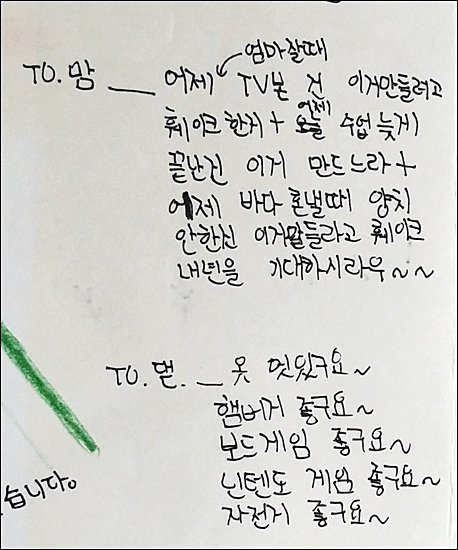 엄마잘때
TO. 맘 — 어제 TV본 건 이거만들려고
어제
훼이크 한거 + 오늘 수업 늦게
끝난건 이거 만드느라 +
어제 바다 혼낼때 양치
안한건 이거만들라고 훼이크
내년을 기대하시라우~~
TO. 댇. — 옷 멋있구요~
햄버거 좋구요~
보드게임 좋구요~
닌텐도 게임 좋구요~
자전거 좋구요~
습니다.